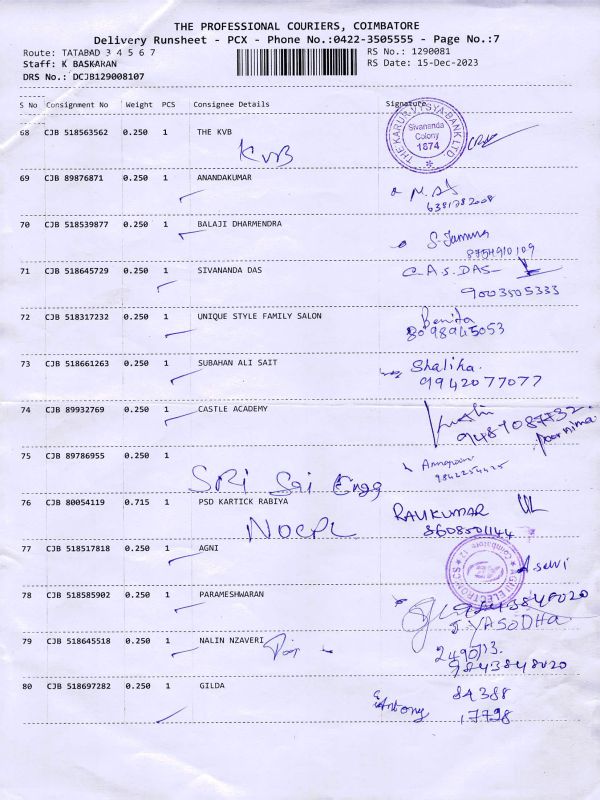 THE PROFESSIONAL COURIERS, COIMBATORE
Delivery Runsheet - PCX - Phone No.:0422-3505555 - Page No.:7
Route: TATABAD 3 4 5 6 7
RS No.: 1290081
Staff: K BASKARAN
RS Date: 15-Dec-2023
DRS No.: DCJB129008107
S No Consignment No Weight PCS Consignee Details Signature
68 CJB 518563562 0.250 1 THE KVB
KVB
THE KARUR VYSYA BANK LTD
Sivananda
Colony
1874
69 CJB 89876871 0.250 1 ANANDAKUMAR
6381782008
70 CJB 518539877 0.250 1 BALAJI DHARMENDRA
S. Jamuna
8754910109
71 CJB 518645729 0.250 1 SIVANANDA DAS
C.A.S. DAS
9003505333
72 CJB 518317232 0.250 1 UNIQUE STYLE FAMILY SALON
Benita
8098945053
73 CJB 518661263 0.250 1 SUBAHAN ALI SAIT
Shaliha.
9942077077
74 CJB 89932769 0.250 1 CASTLE ACADEMY
9487087732.
poornima
75 CJB 89786955 0.250 1
SRI Sai Engg
9842254425
76 CJB 80054119 0.715 1 PSD KARTICK RABIYA
NOCPL
RAVIKUMAR
8608501144
77 CJB 518517818 0.250 1 AGNI
AGNI ELECTRONICS
Coimbatore-12
A selvi
78 CJB 518585902 0.250 1 PARAMESHWARAN
9843848020
J. YASODHA
79 CJB 518645518 0.250 1 NALIN NZAVERI
2490713.
9843848020
80 CJB 518697282 0.250 1 GILDA
Antony
84388
17798